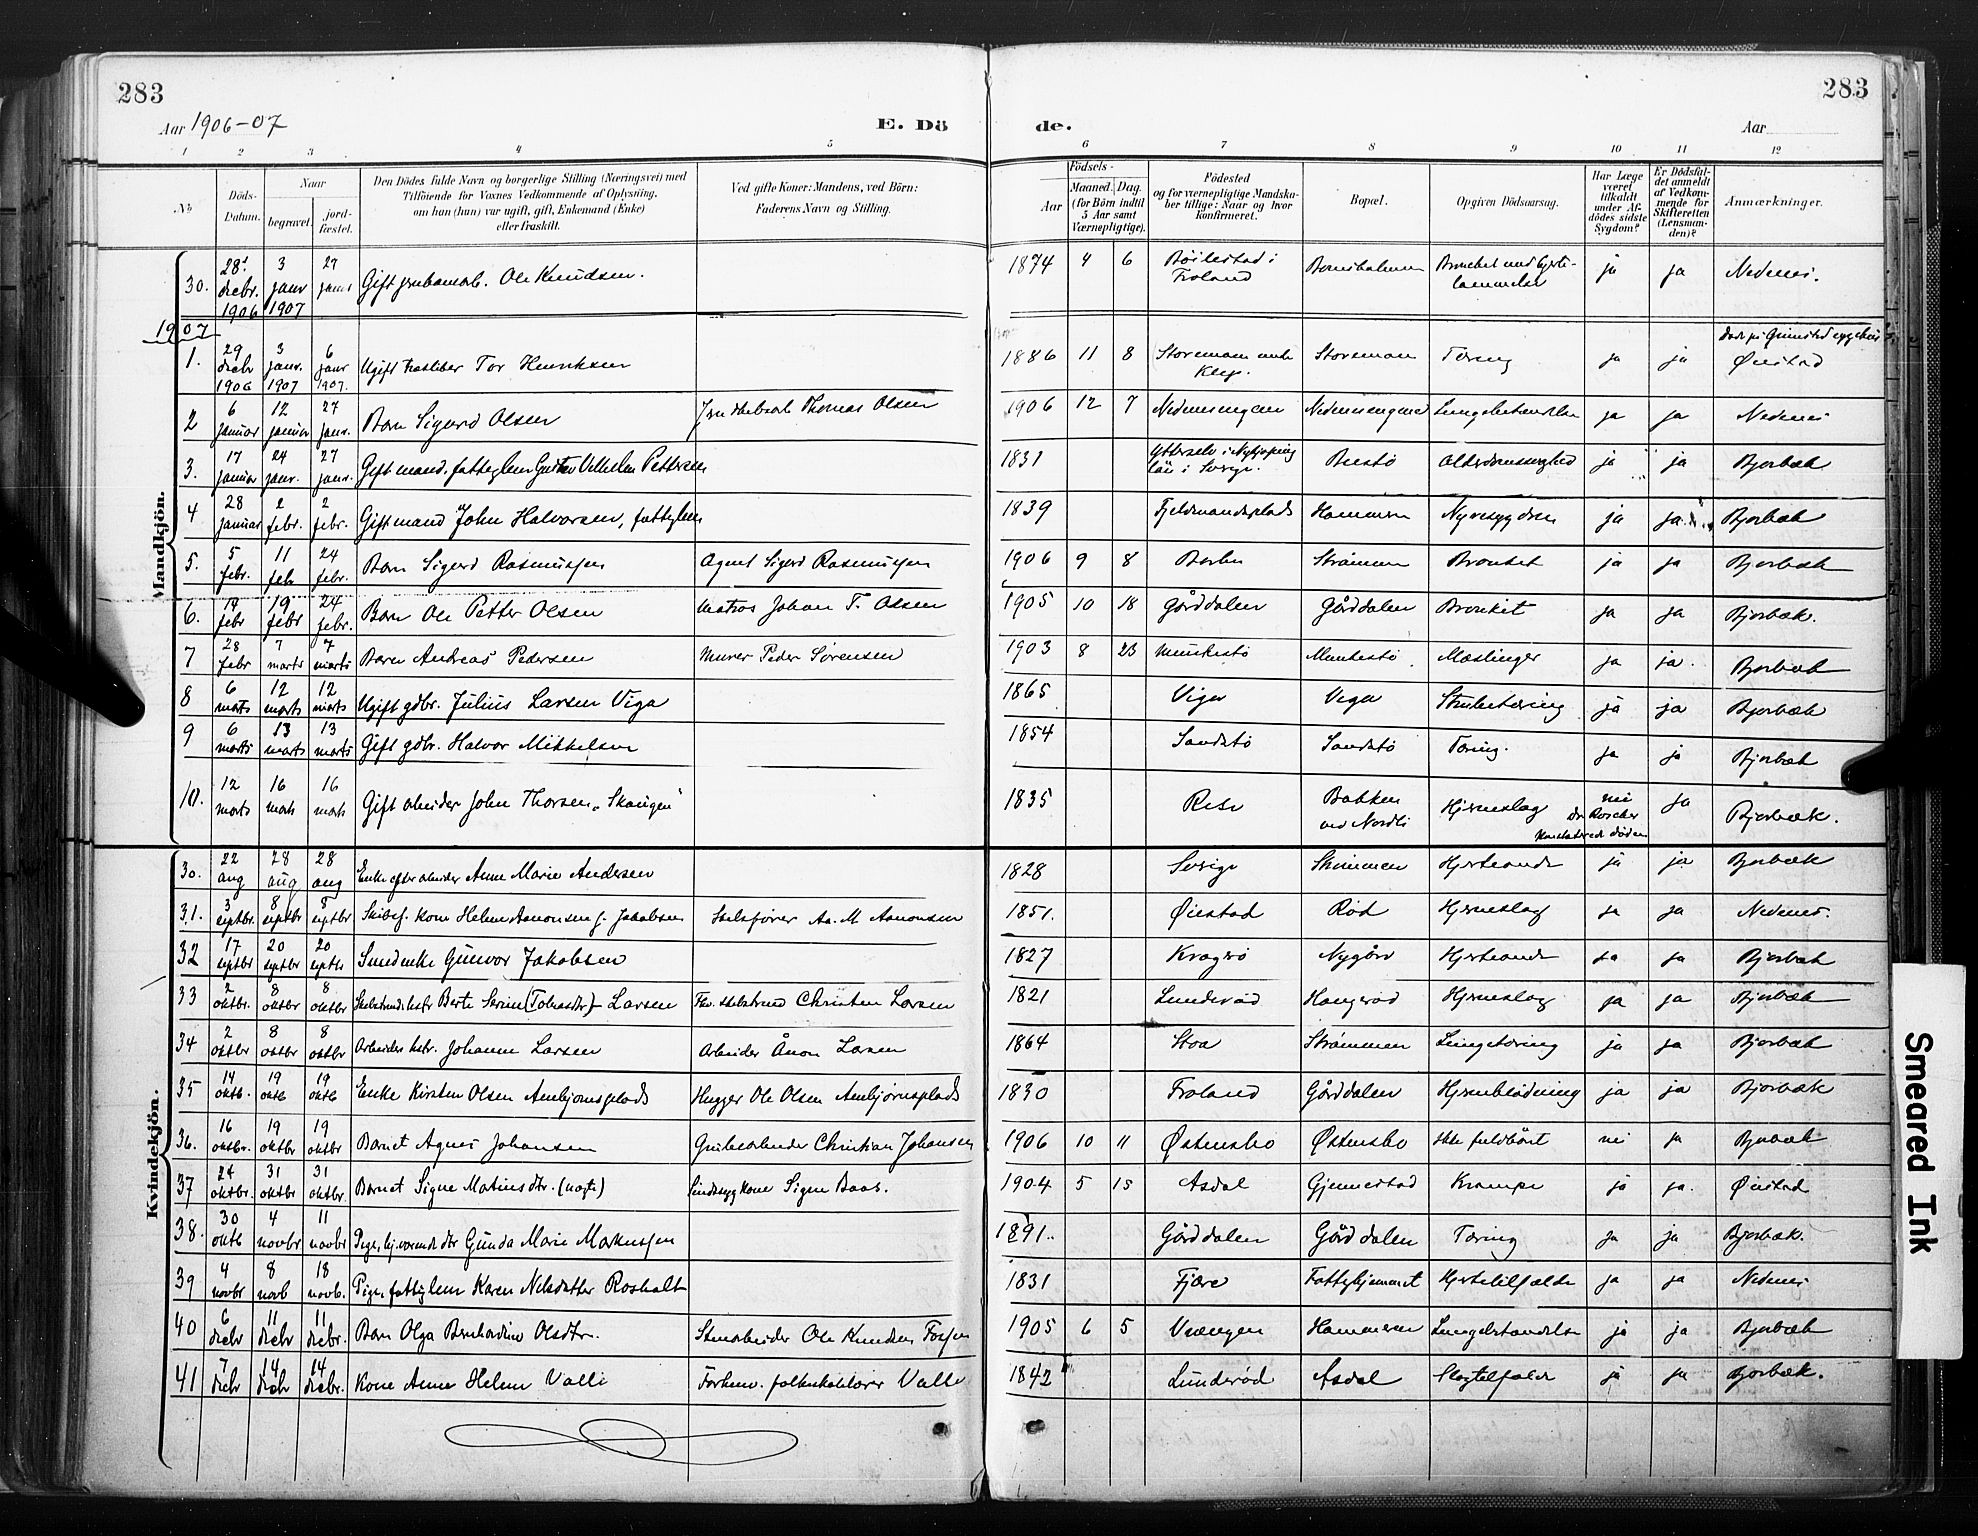 283
283
Aar 1906-07
E. Dö
de.
Aar
1 2 3 4 5 6 7 8 9 10 11 12
No
Döds-Datum.
Naar
begravet.
jord-fæstet.
Den Dödes fulde Navn og borgerlige Stilling (Næringsvei) med
Tilföiende for Voxnes Vedkommende af Oplysning,
om han (hun) var ugift, gift, Enkemand (Enke)
eller fraskilt.
Ved gifte Koner: Mandens, ved Börn:
Faderens Navn og Stilling.
Födsels-
Aar
Maaned. Dag.
(for Börn indtil
5 Aar samt
Værnepligtige).
Födested
og for værnepligtige Mandska-
ber tillige: Naar og hvor
konfirmeret.
Bopæl.
Opgiven Dödsaarsag.
Har Læge
været
tilkaldt
under Af-
dödes sidste
Sygdom?
Er Dödsfal-
det anmeldt
af Vedkom-
mende for
Skifteretten
(Lensman-
den)?
Anmærkninger.
Mandkjön.
30. 28' decbr. 1906 3 janr 1907 27 janr Gift grubearb. Ole Knudsen. 1874 4 6 Böilestad i Froland ja ja Nedenes.
1907
1. 29 decbr 1906 3 janr. 1907 6 janr 1907. Ugift Tor Henriksen 1886 11 8 Storemoen Tæring ja ja Øiestad
2 6 januar 12 januar 27 janr. Barn Sigurd Olsen Thomas Olsen 1906 12 7 Nedenesengene Nedenesengene Lungebetændelse ja ja Nedenes
3. 17 januar 24 janr. 27 janr. Gift mand, fattiglem Gustav Vilhelm Pettersen 1831 Ytterselv i Nykjöping län i Sverige. Biestø Alderdomssvaghed ja ja Bjorbæk
4 28 januar 2 febr. 2 febr. Gift mand John Halvorsen, fattiglem 1839 Fjeldmandsplads Hammeren Nyresygdom ja ja Bjorbæk
5. 5 febr. 11 feb 24 febr. Barn Sigurd Rasmussen Agent Sigurd Rasmussen 1906 9 8 Barbu Strømmen Bronkit ja ja Bjorbæk
6. 14 febr 19 febr 24 febr. Barn Ole Petter Olsen Matros Johan T. Olsen 1905 10 18 Gårddalen Gårddalen Bronkit ja ja Bjorbæk.
7 28 febr 7 marts 7 marts Barn Andreas Pedersen Murer Peder Sørensen 1903 8 23 Munkestø Munkestø Mæslinger ja ja. Bjorbæk
8 6 marts 12 marts 12 marts Ugift gdbr. Julius Larsen Viga 1865 Viga Vega Strubetæring ja ja Bjorbæk
9 6 marts 13 marts 13 marts Gift gdbr. Halvor Mikkelsen 1854 Sandstø Sandstø Tæring. ja ja Bjorbæk
10. 12 marts 16 marts 16 marts Gift arbeider John Thorsen „Skaugen" 1835 Rise Bakken ved Nordli Hjerneslag nei ja Bjorbæk.
Kvindekjön.
30. 22 aug 28 aug 28 aug Enke efter arbeider Anne Marie Andersen 1828 Sverige Strømmen Hjerteonde ja ja Bjorbæk
31. 3 septbr. 8 septbr 8 septbr Skibsf. kone Helene Aanonsen f. Jakobsen Skibsfører Aa. M. Aanonsen 1851. Øiestad Rød Hjerneslag ja ja Nedenes.
32 17 septbr 20 septbr 20 septbr Gunvor Jakobsen 1827 Kragerø Nygård Hjerteonde ja ja Bjorbæk
33 2 oktbr. 8 oktbr 8 oktbr Berte Serine (Tobiasdtr) Larsen Christen Larsen 1821 Lunderød Haugerød Hjerneslag ja ja Bjorbæk
34 2 oktbr 8 oktbr 8 oktbr Arbeider Johanne Larsen Arbeider Ånon Larsen 1864 Stoa Strømmen Lungetæring ja ja Bjorbæk
35 14 oktb. 19 oktb 19 oktb Enke Kirsten Olsen Aenbjørnsplads Hugger Ole Olsen Aenbjørnsplads 1830 Froland Gårddalen Hjerneblødning ja ja Bjorbæk
36. 16 oktbr. 19 oktbr 19 oktbr Barnet Agnes Johansen Grubearbeider Christian Johansen 1906 10 11 Østensbo Østensbo Ikke fuldbårt nei ja Bjorbæk
37 24 oktbr. 31 oktbr 31 oktbr. Barnet Signe Matiusdtr. (uægte) 1904 5 15 Asdal Gjennestad Krampe ja ja. Øiestad
38. 30 oktb 4 novbr 11 novbr Pige, hjv. Gunda Marie Markussen 1891. Gårddalen Gårddalen Tæring ja ja Bjorbæk.
39 4 novbr 8 novb 18 novb. Pige, fattiglem Karen Nilsdatter Rosholt 1831 Fjære Fattighjemmet Hjertetilfælde ja ja Nedenes
40 6 decbr 11 decbr 11 decbr. Barn Olga Bernhardine Olsdtr. Stenarbeider Ole Knudsen 1905 6 5 Vrængen Hammeren Lungebetændelse ja ja Bjorbæk
41 7 decbr 14 decbr 14 decbr. Kone Anne Helene Valle Forhenv. folkeskolelærer Valle 1842 Lunderød Asdal Slagtilfælde ja ja Bjorbæk.
Smeared Ink